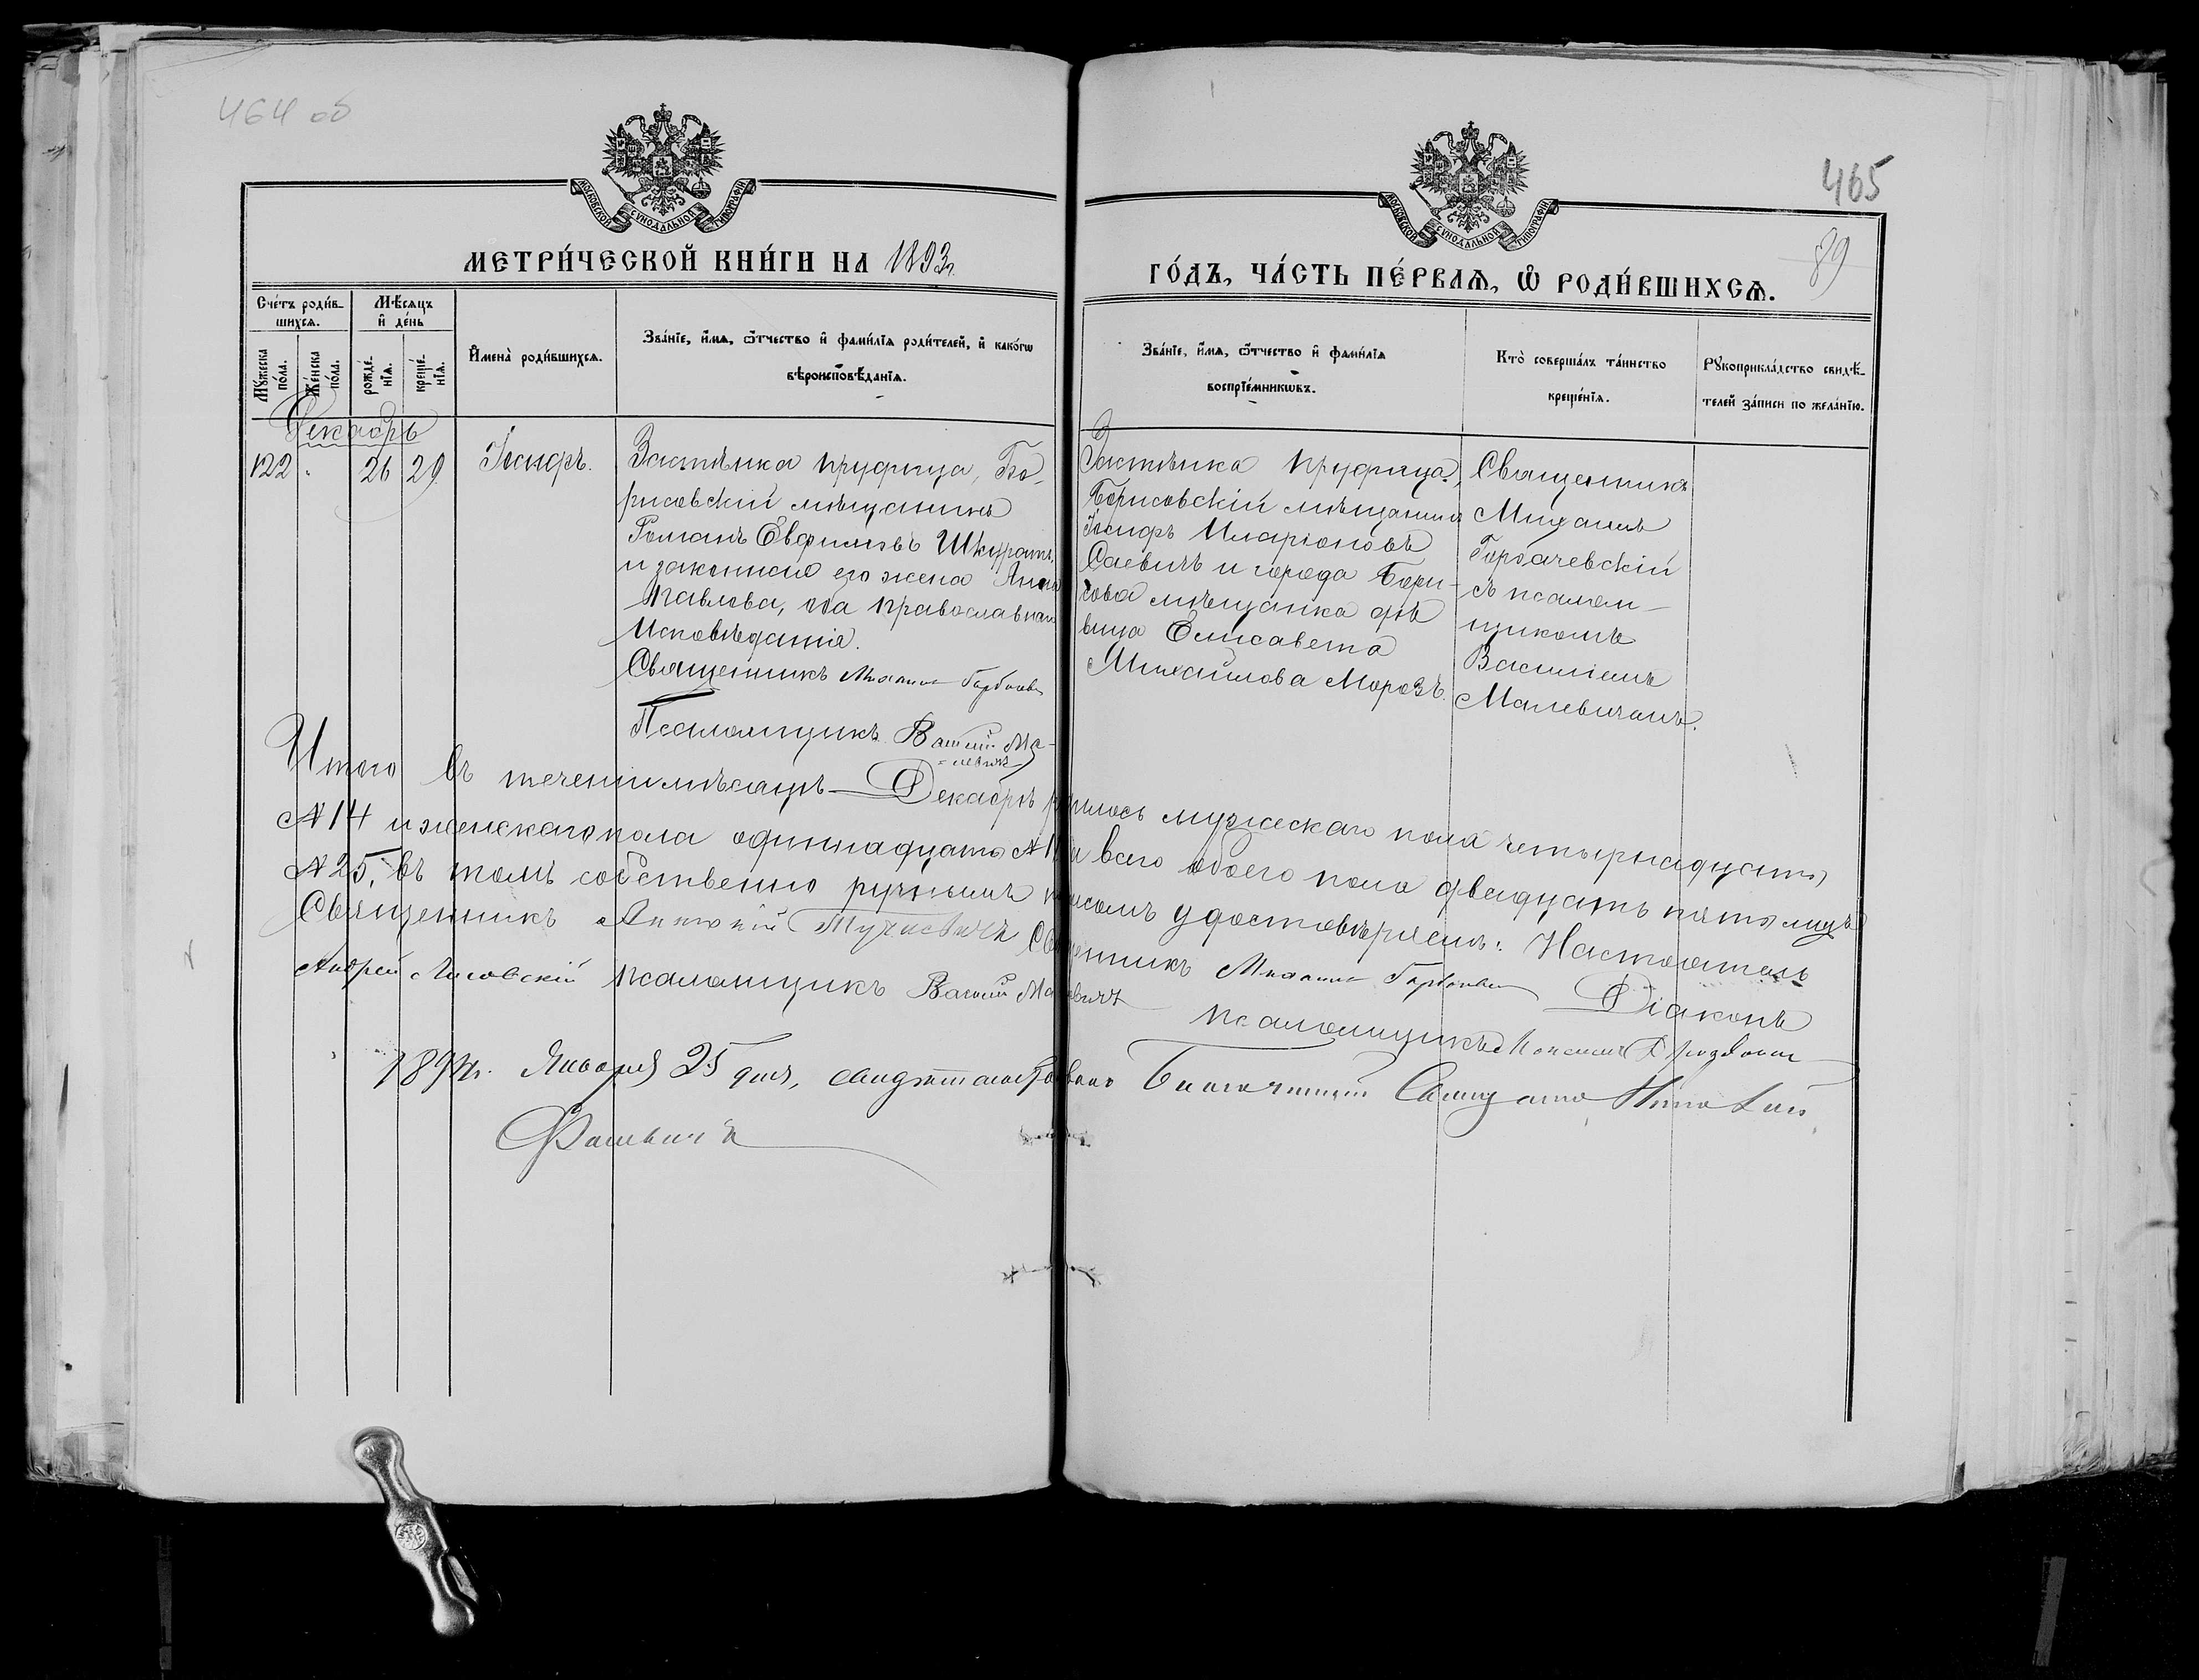 464 об
465
89
МОСКОВСКОЙ СѴНОДАЛЬНОЙ ТИПОГРАФІИ
МОСКОВСКОЙ СѴНОДАЛЬНОЙ ТИПОГРАФІИ
МЕТРИ́ЧЕСКОЙ КНИ́ГИ НА 1893 г.
ГО́ДЪ, ЧА́СТЬ ПЕ́РВАѦ, Ѡ҆ РОДИ́ВШИХСѦ.
Сче́тъ роди́в-
шихсѧ.
Мѣ́сѧцъ
и҆ де́нь
Мꙋ́жеска
по́ла.
Же́нска
по́ла.
рожде́-
нїѧ.
креще́-
нїѧ.
И҆мена̀ роди́вшихсѧ.
Зва́нїе, и҆́мѧ, ѻ҆́тчество и҆ фами́лїѧ роди́телей, и҆ како́гѡ
вѣроисповѣ́данїѧ.
Зва́нїе, и҆́мѧ, ѻ҆́тчество и҆ фами́лїѧ
воспрїе́мникѡвъ.
Кто̀ соверша́лъ та́инство
креще́нїѧ.
Рꙋкоприкла́дство свидѣ́-
телей за́писи по жела́нїю.
Декабрь
122 " 26 29 Іосифъ.
Застѣнка Прудища, Бо-
рисовскій мѣщанинъ
Романъ Евфимовъ Шкуратъ,
и законная его жена Анна
Павлова, оба православнаго
Исповѣданія.
Священникъ Михаилъ Горбачевскій
Псаломщикъ Василій Ма-
левичъ
Застѣнка Прудища,
Борисовскій мѣщанинъ
Іосифъ Иларіоновъ
Саевичъ и города Бори-
сова мѣщанка дѣ
вица Елисавета
Михайлова Морозъ.
Священникъ
Михаилъ
Горбачевскій
съ псалом-
щикомъ
Василіемъ
Малевичемъ.
Итого въ теченіи мѣсяцъ Декабрь родилось мужескаго пола четырнадцать
№ 14 и женскаго пола одиннадцать № 11 а всего обоего пола двадцать пять лицъ
№ 25, въ томъ собственно ручнымъ подписомъ удостовѣряемъ: Настоятель
Священникъ Антоній Священникъ Михаилъ Горбачевскій Діаконъ
Андрей Лисовскій Псаломщикъ Василій Малевичъ
Псаломщикъ
1894 г. Января 25 дня, свидѣтельствовалъ Благочинный Священникъ Николай